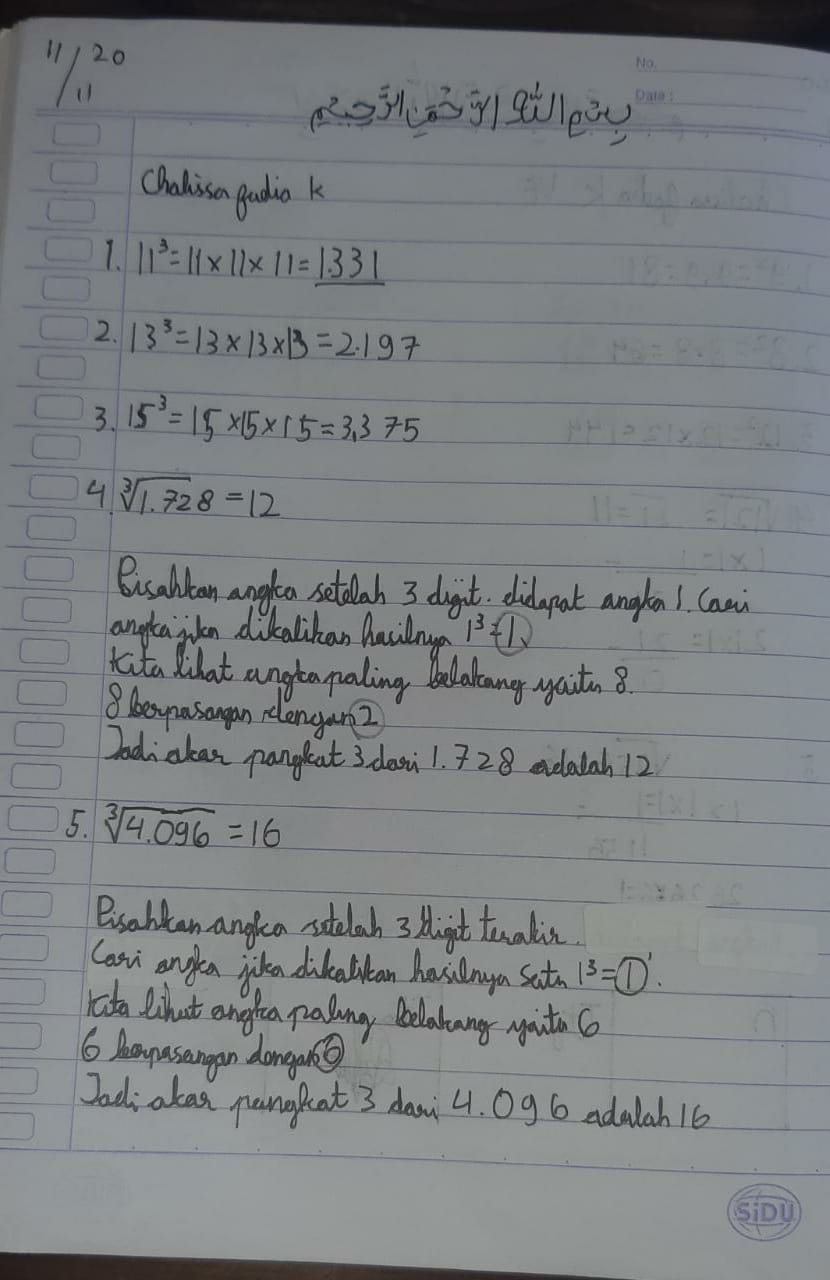 11/11 20
No.
Date:
بسم الله الرحمن الرحيم
Chalissa fadia k
1. 11³=11×11×11=1.331
2. 13³=13×13×13=2.197
3. 15³=15×15×15=3.375
4. ∛1.728=12
Pisahkan angka setelah 3 digit. didapat angka 1. Cari
angka jika dikalikan hasilnya 1³=1.
Kita lihat angka paling belakang yaitu 8.
8 berpasangan dengan 2
Jadi akar pangkat 3 dari 1.728 adalah 12
5. ∛4.096=16
Pisahkan angka setelah 3 digit terakir.
Cari angka jika dikalikan hasilnya satu 1³=1.
Kita lihat angka paling belakang yaitu 6
6 berpasangan dengan 6
Jadi akar pangkat 3 dari 4.096 adalah 16
SiDU